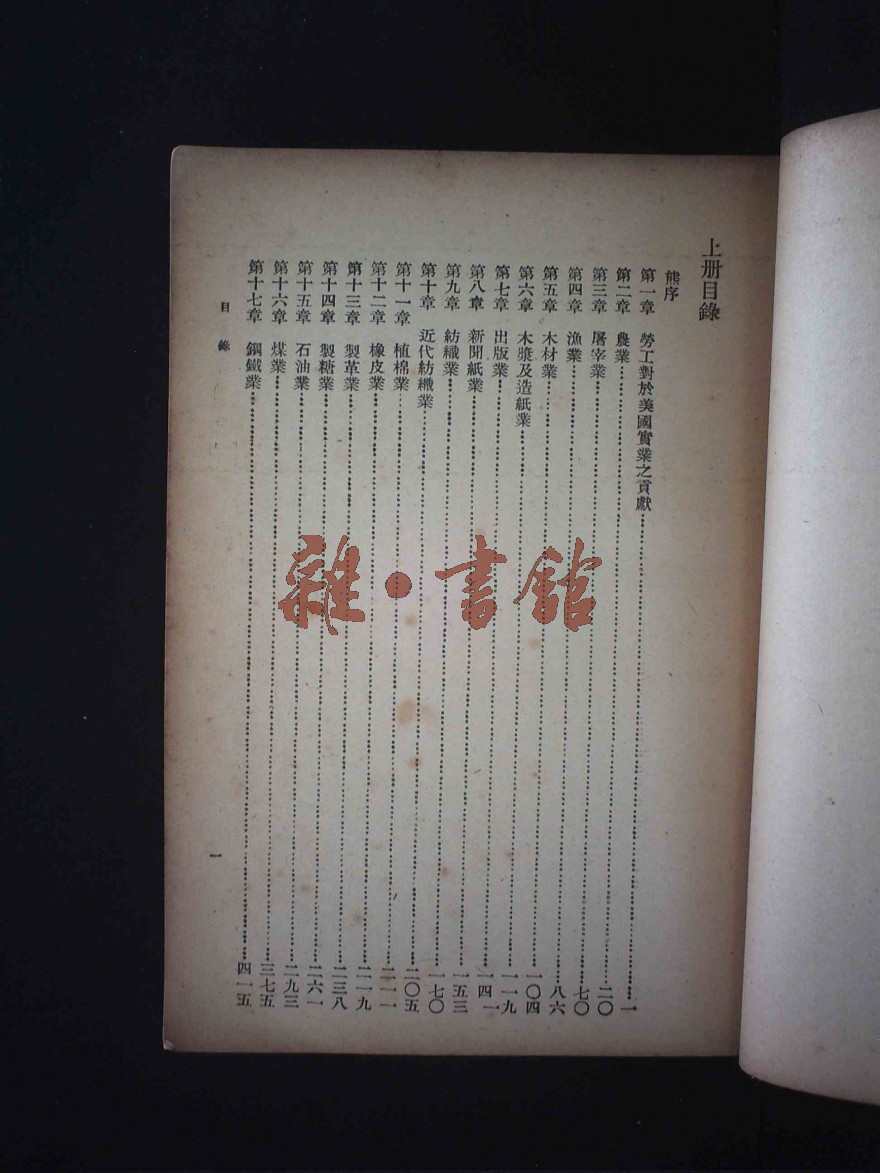 上册目錄
熊序
第一章 勞工對於美國實業之貢獻……一
第二章 農業……二〇
第三章 屠宰業……七〇
第四章 漁業……八六
第五章 木材業……一〇四
第六章 木漿及造紙業……一一九
第七章 出版業……一四一
第八章 新聞紙業……一五三
第九章 紡織業……一七〇
第十章 近代紡織業……二〇五
第十一章 植棉業……二一一
第十二章 橡皮業……二一九
第十三章 製革業……二三八
第十四章 製糖業……二六一
第十五章 石油業……二九三
第十六章 煤業……三七五
第十七章 鋼鐵業……四一五
目錄
一
雜·書館